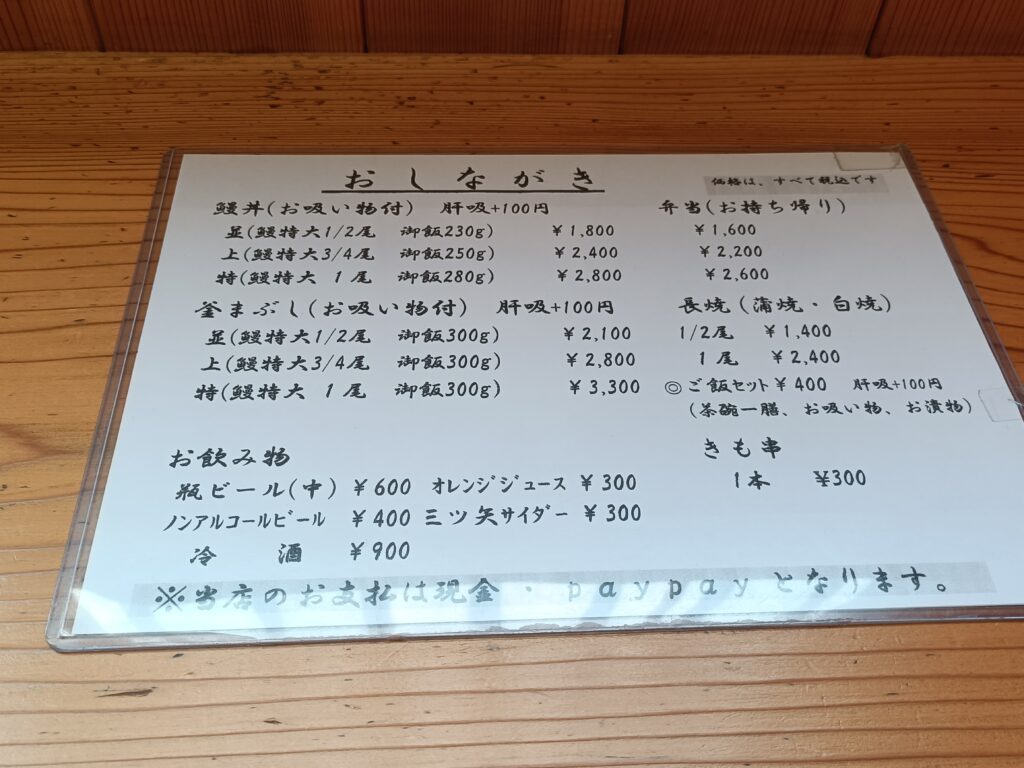 おしながき
価格は、すべて税込です
鰻丼(お吸い物付) 肝吸+100円
並(鰻特大1/2尾 御飯230g) ¥1,800
上(鰻特大3/4尾 御飯250g) ¥2,400
特(鰻特大 1尾 御飯280g) ¥2,800
釜まぶし(お吸い物付) 肝吸+100円
並(鰻特大1/2尾 御飯300g) ¥2,100
上(鰻特大3/4尾 御飯300g) ¥2,800
特(鰻特大 1尾 御飯300g) ¥3,300
弁当(お持ち帰り)
¥1,600
¥2,200
¥2,600
長焼(蒲焼・白焼)
1/2尾 ¥1,400
1尾 ¥2,400
◎ご飯セット¥400 肝吸+100円
(茶碗一膳、お吸い物、お漬物)
きも串
1本 ¥300
お飲み物
瓶ビール(中) ¥600 オレンジジュース ¥300
ノンアルコールビール ¥400 三ツ矢サイダー ¥300
冷 酒 ¥900
※当店のお支払は現金・paypayとなります。